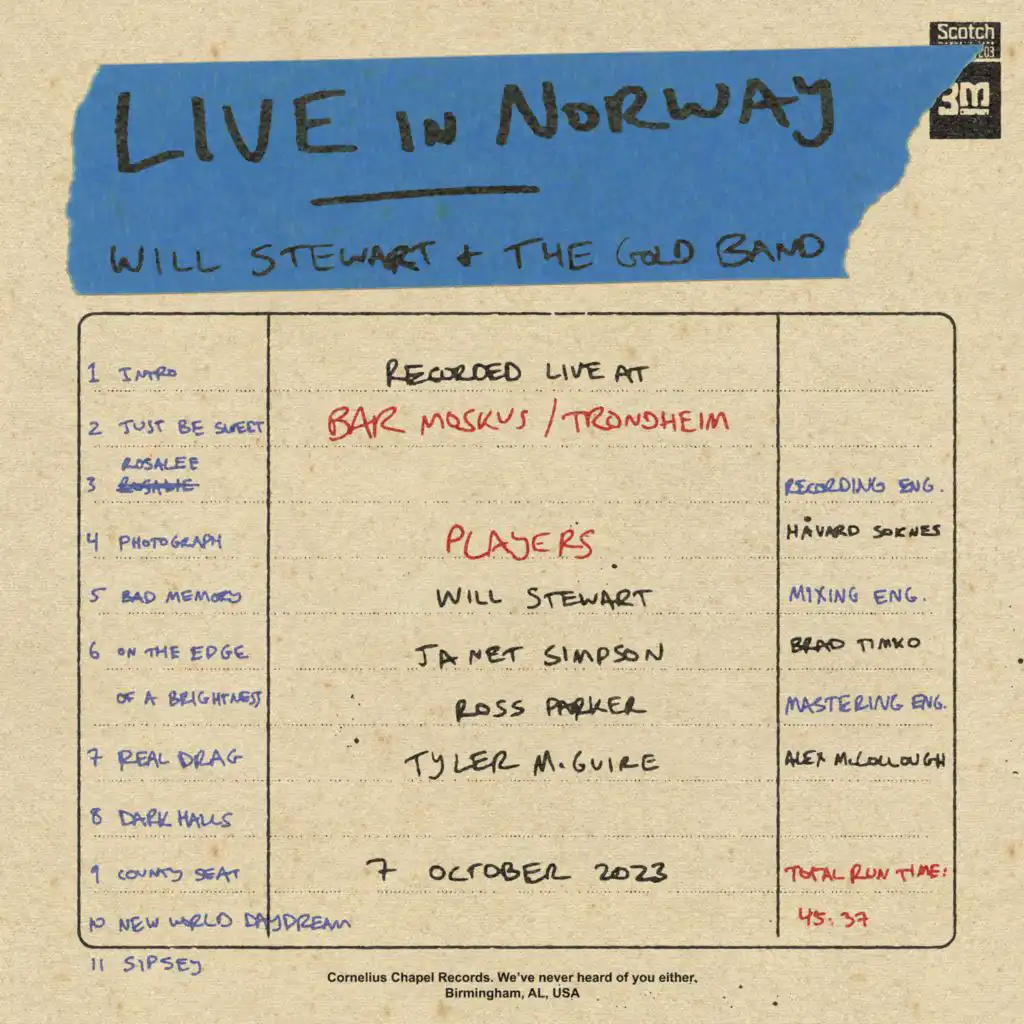 Scotch
203
3M
COMPANY
LIVE IN NORWAY
WILL STEWART + THE GOLD BAND
1 INTRO
2 JUST BE SWEET
ROSALEE
3 ROSALIE
4 PHOTOGRAPH
5 BAD MEMORY
6 ON THE EDGE
OF A BRIGHTNESS
7 REAL DRAG
8 DARK HALLS
9 COUNTY SEAT
10 NEW WORLD DAYDREAM
11 SIPSEY
RECORDED LIVE AT
BAR MOSKUS / TRONDHEIM
PLAYERS
WILL STEWART
JANET SIMPSON
ROSS PARKER
TYLER M.GUIRE
7 OCTOBER 2023
RECORDING ENG.
HÅVARD SOKNES
MIXING ENG.
BRAD TIMKO
MASTERING ENG.
ALEX McCOLLOUGH
TOTAL RUN TIME:
45:37
Cornelius Chapel Records. We've never heard of you either.
Birmingham, AL, USA